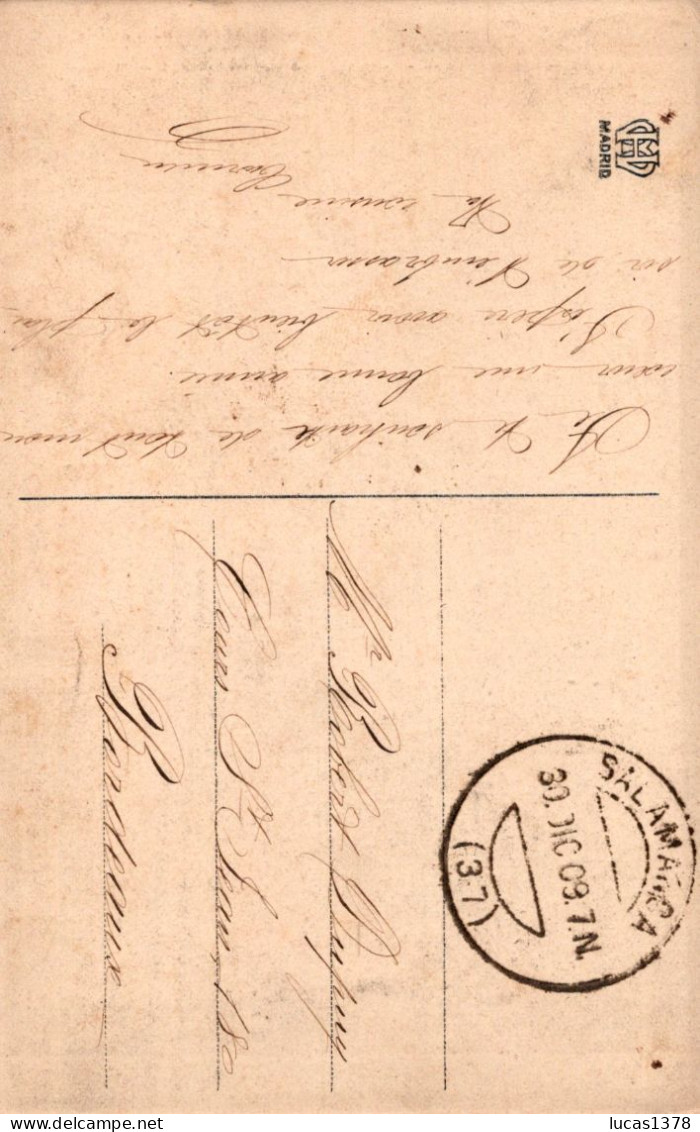 Je te souhaite de tout mon
cœur une bonne année.
J'espère avoir bientôt le plai
sir de t'embrasser
Ta cousine Carmen
MADRID
Mr Robert Dupuy
Cours St Jean, 180
Bordeaux
SALAMANCA
30.DIC 09.7.N.
(37)
delcampe.net
lucas1378